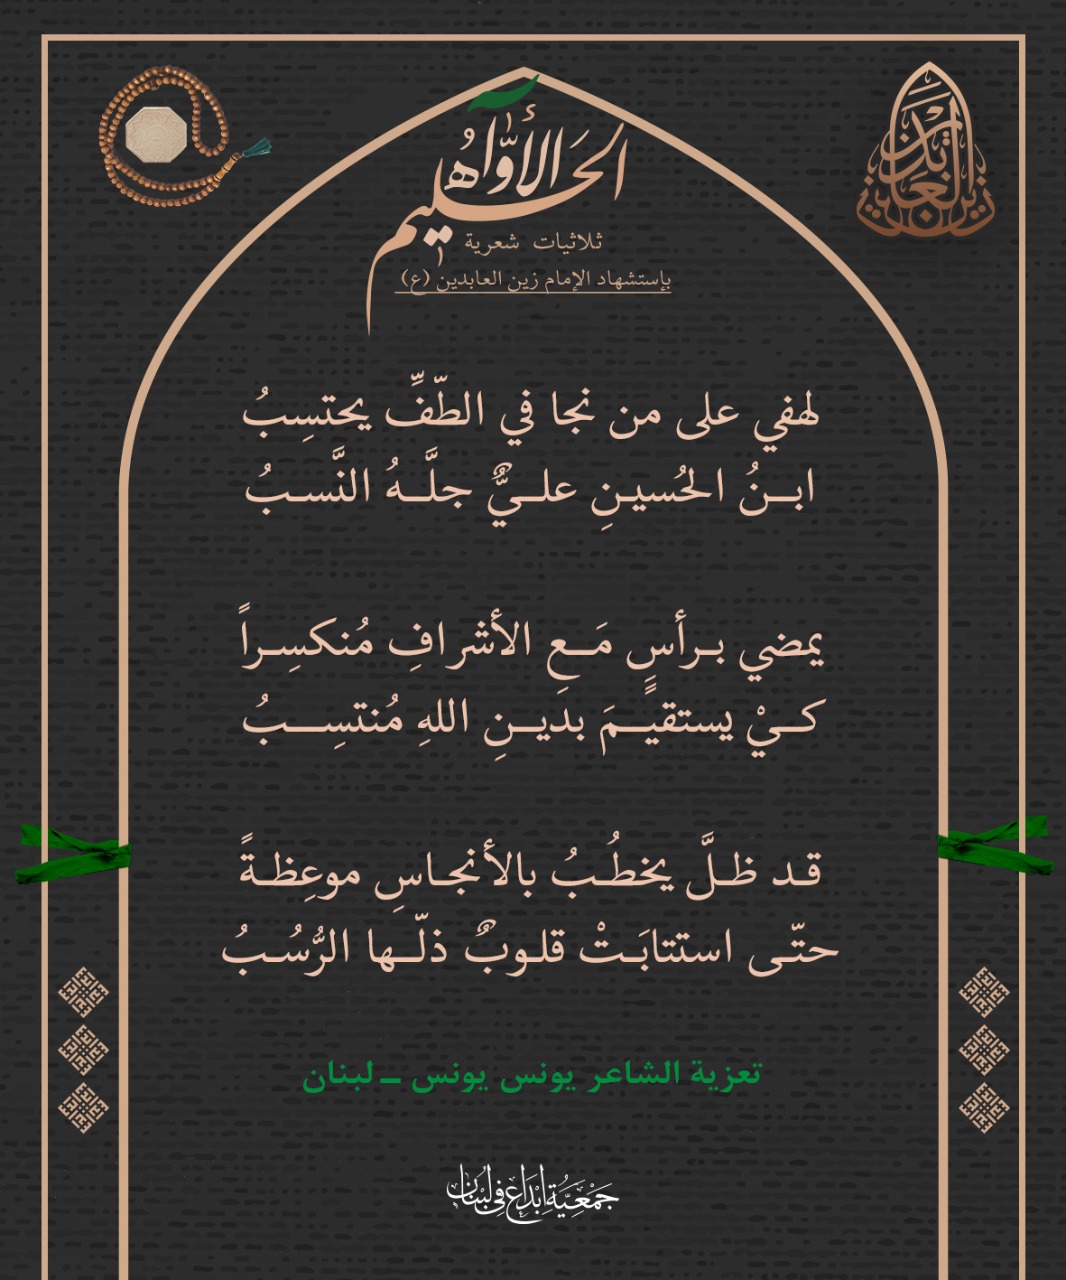 زين العابدين
الأوّاه الحليم
ثلاثيات شعرية
بإستشهاد الإمام زين العابدين (ع)
لهفي على من نجا في الطّفِّ يحتسِبُ
ابـنُ الحُسينِ علـيٌّ جلَّـهُ النَّسـبُ
يمضي بـرأسٍ مَـعِ الأشرافِ مُنكسِـراً
كـيْ يستقيـمَ بدَيـنِ اللهِ مُنتسِـبُ
قـد ظـلَّ يخطُـبُ بالأنجـاسِ موعِظـةً
حتّـى استتابَـتْ قلـوبٌ ذلّـها الرُّسُـبُ
تعزية الشاعر يونس يونس ــ لبنان
جَمْعِيَّةُ إبْدَاع فِي لُبْنَان